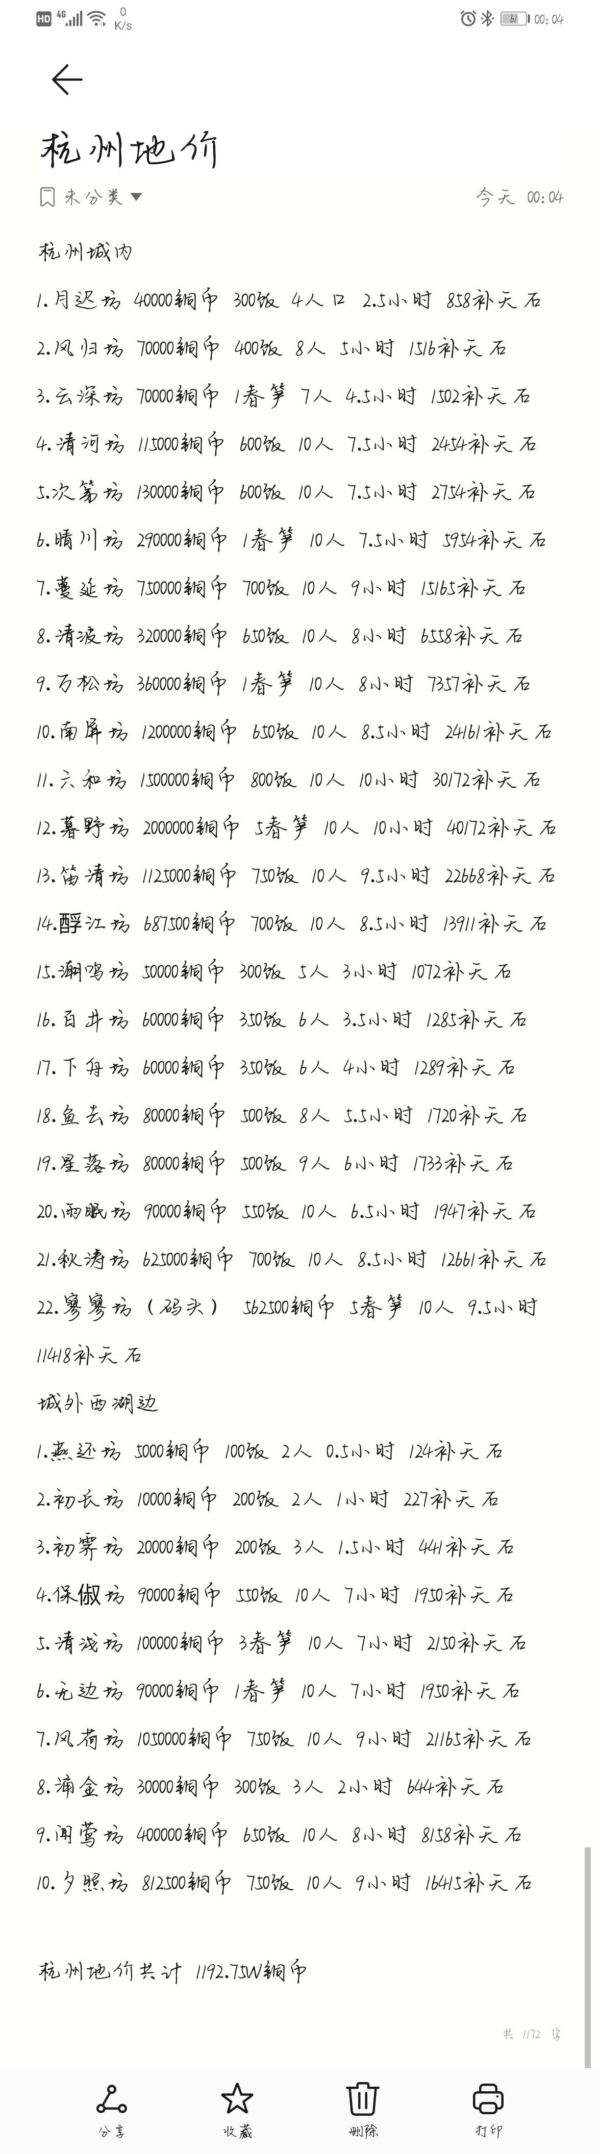 HD 4G 0 K/s 61 00:04
杭州地价
未分类 今天 00:04
杭州城内
1.月迟坊 40000铜币 300饭 4人口 2.5小时 858补天石
2.风归坊 70000铜币 400饭 8人 5小时 1516补天石
3.云深坊 70000铜币 1春笋 7人 4.5小时 1502补天石
4.清河坊 115000铜币 600饭 10人 7.5小时 2454补天石
5.次第坊 130000铜币 600饭 10人 7.5小时 2754补天石
6.晴川坊 290000铜币 1春笋 10人 7.5小时 5954补天石
7.蔓延坊 750000铜币 700饭 10人 9小时 15165补天石
8.清波坊 320000铜币 650饭 10人 8小时 6558补天石
9.万松坊 360000铜币 1春笋 10人 8小时 7357补天石
10.南屏坊 1200000铜币 650饭 10人 8.5小时 24161补天石
11.六和坊 1500000铜币 800饭 10人 10小时 30172补天石
12.暮野坊 2000000铜币 5春笋 10人 10小时 40172补天石
13.笛清坊 1125000铜币 750饭 10人 9.5小时 22668补天石
14.酹江坊 687500铜币 700饭 10人 8.5小时 13911补天石
15.潮鸣坊 50000铜币 300饭 5人 3小时 1072补天石
16.百井坊 60000铜币 350饭 6人 3.5小时 1285补天石
17.下舟坊 60000铜币 350饭 6人 4小时 1289补天石
18.鱼去坊 80000铜币 500饭 8人 5.5小时 1720补天石
19.星落坊 80000铜币 500饭 9人 6小时 1733补天石
20.雨眠坊 90000铜币 550饭 10人 6.5小时 1947补天石
21.秋涛坊 625000铜币 700饭 10人 8.5小时 12661补天石
22.寥寥坊（码头） 562500铜币 5春笋 10人 9.5小时
11418补天石
城外西湖边
1.燕还坊 5000铜币 100饭 2人 0.5小时 124补天石
2.初长坊 10000铜币 200饭 2人 1小时 227补天石
3.初霁坊 20000铜币 200饭 3人 1.5小时 441补天石
4.保俶坊 90000铜币 550饭 10人 7小时 1950补天石
5.清浅坊 100000铜币 3春笋 10人 7小时 2150补天石
6.无边坊 90000铜币 1春笋 10人 7小时 1950补天石
7.风荷坊 1050000铜币 750饭 10人 9小时 21165补天石
8.涌金坊 30000铜币 300饭 3人 2小时 644补天石
9.闻莺坊 400000铜币 650饭 10人 8小时 8158补天石
10.夕照坊 812500铜币 750饭 10人 9小时 16415补天石
杭州地价共计 1192.75W铜币
共 1172 字
分享 收藏 删除 打印